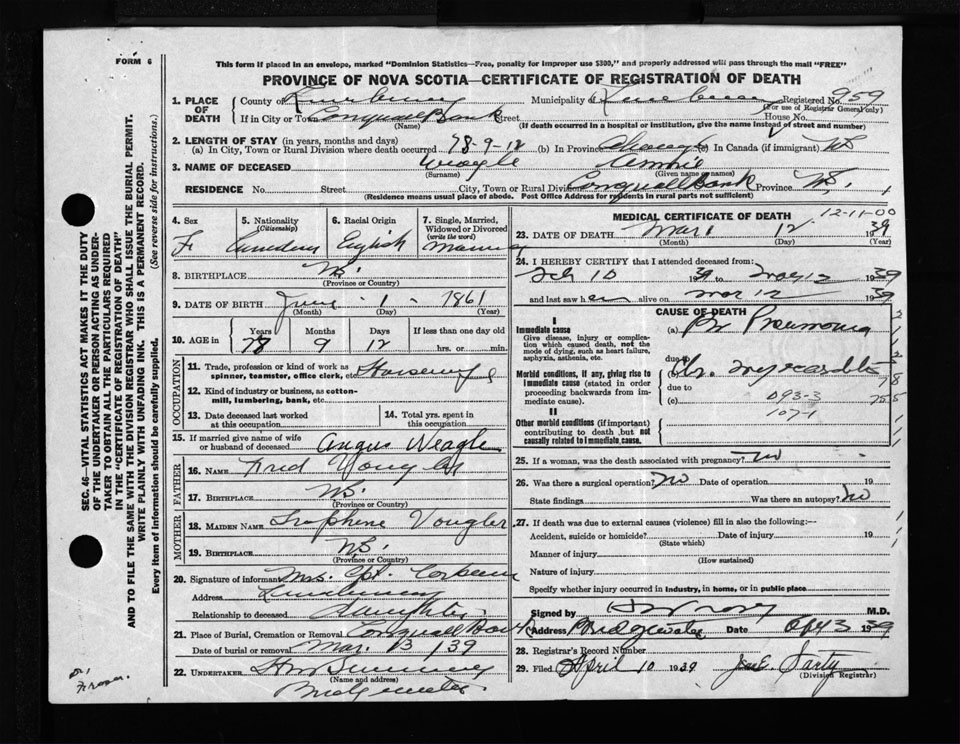 FORM 6
This form if placed in an envelope, marked "Dominion Statistics—Free, penalty for improper use $300," and properly addressed will pass through the mail "FREE"
PROVINCE OF NOVA SCOTIA—CERTIFICATE OF REGISTRATION OF DEATH
1. PLACE OF DEATH
County of Lunenburg Municipality of Lunenburg Registered No. 959
(For use of Registrar General only)
If in City or Town Conquerall Bank Street House No.
(Name) (If death occurred in a hospital or institution, give the name instead of street and number)
2. LENGTH OF STAY (in years, months and days)
(a) In City, Town or Rural Division where death occurred 78-9-12 (b) In Province Always (c) In Canada (if immigrant)
3. NAME OF DECEASED Weagle
(Surname) (Given name or names)
RESIDENCE No. Street City, Town or Rural Division Conquerall Bank Province N.S.
(Residence means usual place of abode. Post Office Address for residents in rural parts not sufficient)
4. Sex F
5. Nationality (Citizenship) Canadian
6. Racial Origin English
7. Single, Married, Widowed or Divorced (write the word) Married
8. BIRTHPLACE N.S.
(Province or Country)
9. DATE OF BIRTH June 1 1861
(Month) (Day) (Year)
10. AGE in Years 78 Months 9 Days 12 If less than one day old hrs. or min.
OCCUPATION
11. Trade, profession or kind of work as spinner, teamster, office clerk, etc. Housewife
12. Kind of industry or business, as cotton-mill, lumbering, bank, etc.
13. Date deceased last worked at this occupation
14. Total yrs. spent in this occupation
15. If married give name of wife or husband of deceased Angus Weagle
FATHER
16. NAME Fred
17. BIRTHPLACE N.S.
(Province or Country)
MOTHER
18. MAIDEN NAME Vougler
19. BIRTHPLACE N.S.
(Province or Country)
20. Signature of informant Mrs.
Address Lunenburg
Relationship to deceased Daughter
21. Place of Burial, Cremation or Removal Conquerall Bank
Date of burial or removal Mar. 13 /39
22. UNDERTAKER
(Name and address)
Bridgewater
MEDICAL CERTIFICATE OF DEATH
12-11-00
23. DATE OF DEATH Mar. 12 1939
(Month) (Day) (Year)
24. I HEREBY CERTIFY that I attended deceased from:
Feb 10 1939 to Mar 12 1939
and last saw her alive on Mar 12 1939
CAUSE OF DEATH
I
Immediate cause
Give disease, injury or complication which caused death, not the mode of dying, such as heart failure, asphyxia, asthenia, etc.
(a) Br Pneumonia
due to
Morbid conditions, if any, giving rise to immediate cause (stated in order proceeding backwards from immediate cause).
(b) Chr. Myocarditis
due to
(c) 093-3
107-1
II
Other morbid conditions (if important) contributing to death but not causally related to immediate cause.
25. If a woman, was the death associated with pregnancy? No
26. Was there a surgical operation? No Date of operation 19
State findings Was there an autopsy? No
27. If death was due to external causes (violence) fill in also the following:—
Accident, suicide or homicide? Date of injury 19
(State which)
Manner of injury
(How sustained)
Nature of injury
Specify whether injury occurred in industry, in home, or in public place
Signed by M.D.
Address Bridgewater Date Apr 3 1939
28. Registrar's Record Number
29. Filed April 10 1939
(Division Registrar)
SEC. 46—VITAL STATISTICS ACT MAKES IT THE DUTY
OF THE UNDERTAKER OR PERSON ACTING AS UNDERTAKER TO OBTAIN ALL THE PARTICULARS REQUIRED
IN THE "CERTIFICATE OF REGISTRATION OF DEATH"
AND TO FILE THE SAME WITH THE DIVISION REGISTRAR WHO SHALL ISSUE THE BURIAL PERMIT.
WRITE PLAINLY WITH UNFADING INK. THIS IS A PERMANENT RECORD.
Every item of Information should be carefully supplied. (See reverse side for instructions.)